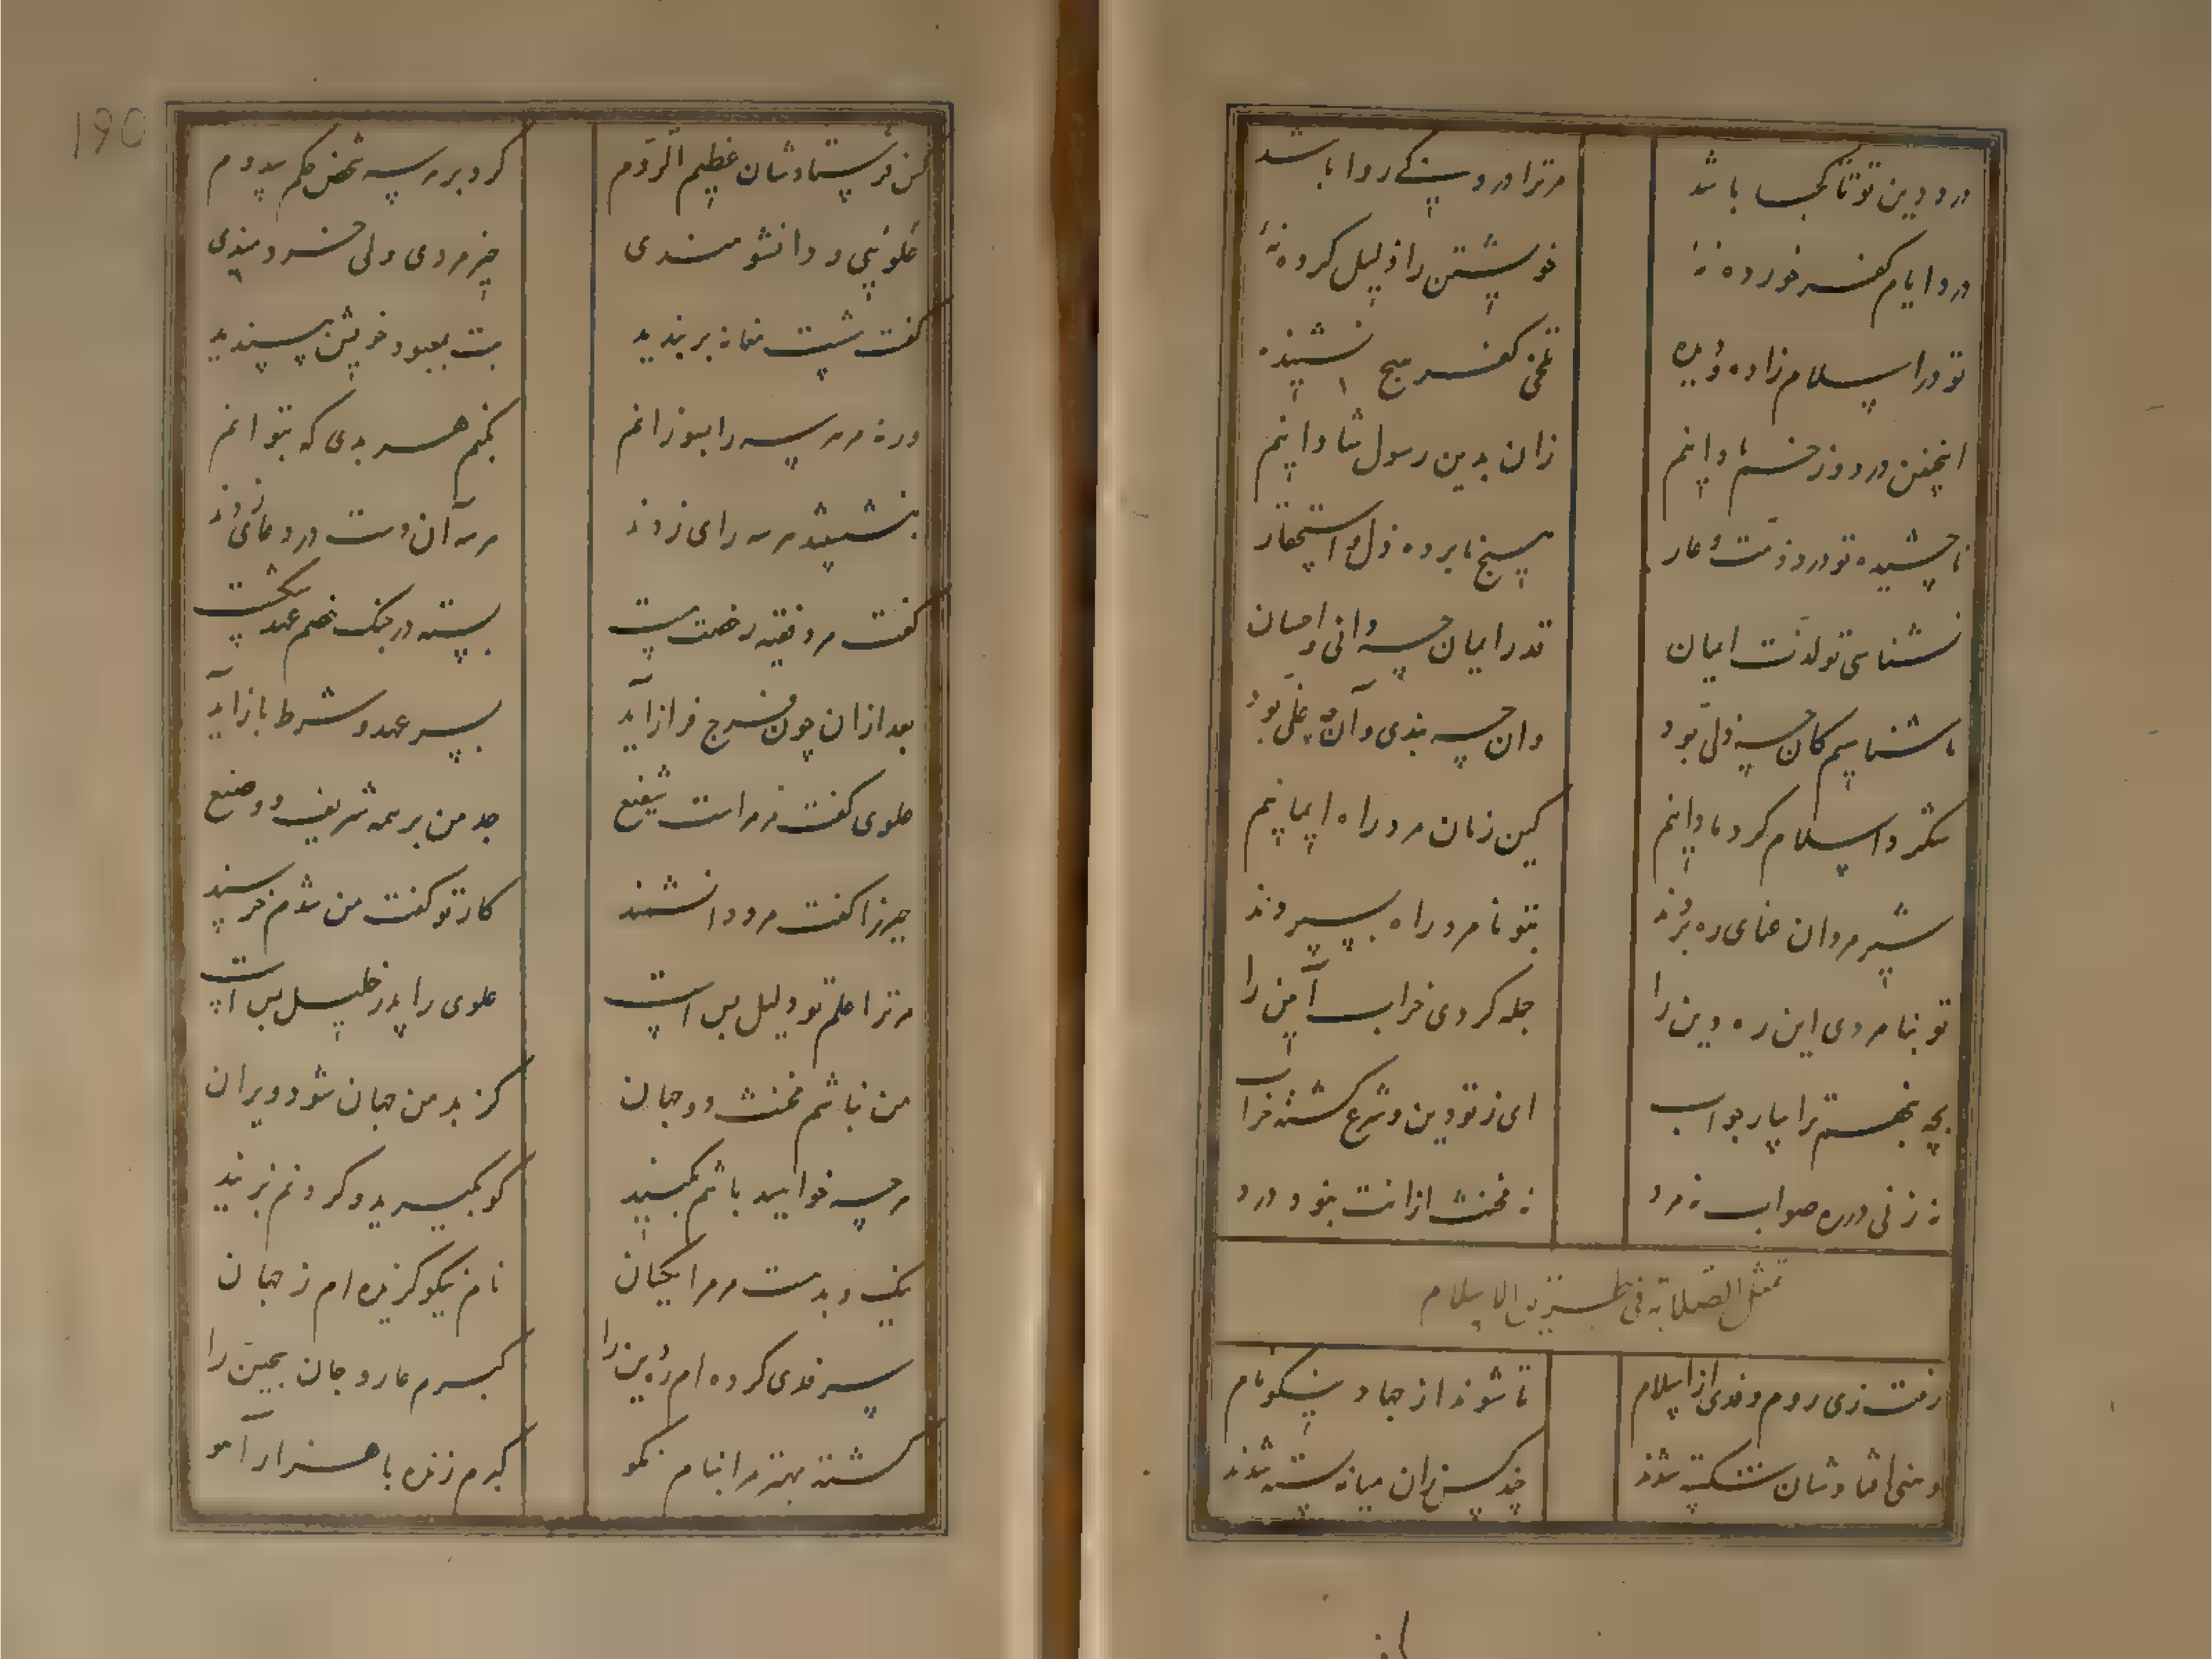 درد دین تو تا کجا باشد
مر ترا درد دین کی روا باشد
درد ایام کفر خورده نهٔ
خویشتن را ذلیل کرده نهٔ
تو در اسلام زادهٔ و بده
تلخی کفر هیچ نشنیده
اینچنین درد دوزخ ما دانیم
زان بدین رسول شادانیم
ناچشیده تو درد ذمت و عار
هیچ نابرده ذل و استحقار
نشناسی تو لذت ایمان
قدر ایمان چه دانی و احسان
ما شناسیم کان چه ذلی بود
وان چه بندی و آن چه غلی بود
شکر اسلام کرد ما دانیم
کین زمان مرد راه ایمانیم
شیر مردان همای ره بردند
بتو نامرد راه بسپردند
تو بنامردی این ره دین را
جمله کردی خراب آیین را
بچه بجهت ترا بیار جواب
ای ز تو دین و شرع گشته خراب
نه زنی در ره صواب نه مرد
نه مخنث ازانت نبود درد
تمثل الصلابة فی طریق الاسلام
رفت زی روم وفدی از اسلام
تا شوند از جهاد نیکو نام
وهنی افتادشان شکسته شدند
چند کس زان میانه بسته شدند
190
کس فرستادشان عظیم الروم
کرد بر هر سه شخص حکم سدوم
علویی و دانشومندی
حیز مردی ولی خردمندی
گفت شیب نمانه بر بندید
بت بمعبود خویش بپسندید
ورنه هر سه را بسوزانم
بکنم هر بدی که بتوانم
بنشستند هر سه رای زدند
هر سه آن دست در دعای زدند
گفت مرد فقیه رخصت هست
بسته در جنگ خصم عهد شکست
بعد ازان چون فرج فراز آید
بسر عهد و شرط باز آید
علوی گفت مر مراست شفیع
جد من بر همه شریف و وضیع
حیز را گفت مرد دانشمند
کار تو گفت من شدم خرسند
مر ترا علم تو دلیل بس است
علوی را پدر خلیل بس است
من نباشم مخنث دو جهان
کز بد من جهان شود ویران
هر چه خواهید با تنم بکنید
گو بگیرید و گردنم بزنید
نیک و بد هست مر مرا یکسان
نام نیکو گزیده ام ز جهان
سر فدی کرده ام ره دین را
گیرم عار و جان بجین را
کشته بهتر مرا بنام نکو
گیرم زنده با هزار آهو